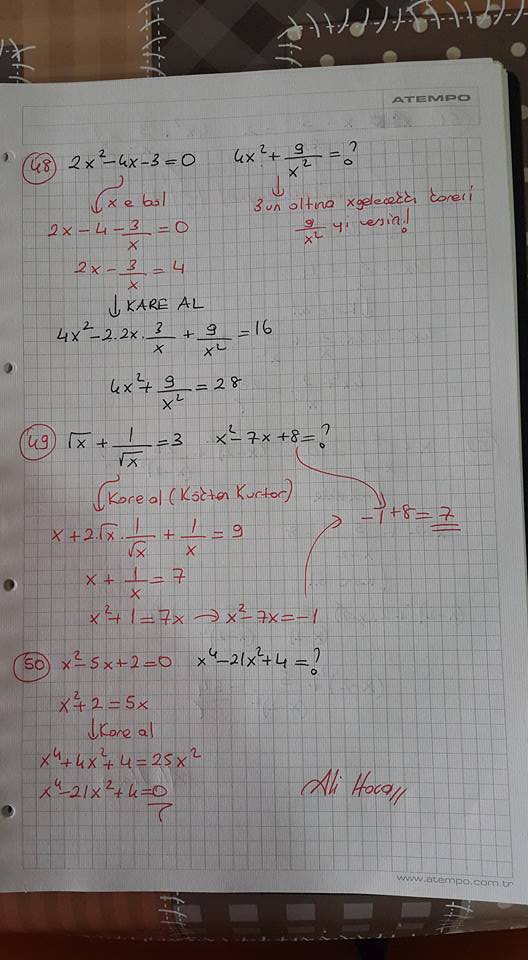 ATEMPO
48 2x²-4x-3=0 4x²+9/x²=?
x e böl 3 ün altına x gelecek ki karesi
2x-4-3/x=0 9/x² yi versin!
2x-3/x=4
KARE AL
4x²-2.2x.3/x+9/x²=16
4x²+9/x²=28
49 √x+1/√x=3 x²-7x+8=?
Kare al (Kökten Kurtar)
-1+8=7
x+2.√x.1/√x+1/x=9
x+1/x=7
x²+1=7x→x²-7x=-1
50 x²-5x+2=0 x⁴-21x²+4=?
x²+2=5x
Kare al
x⁴+4x²+4=25x²
x⁴-21x²+4=0
Ali Hoca
www.atempo.com.tr